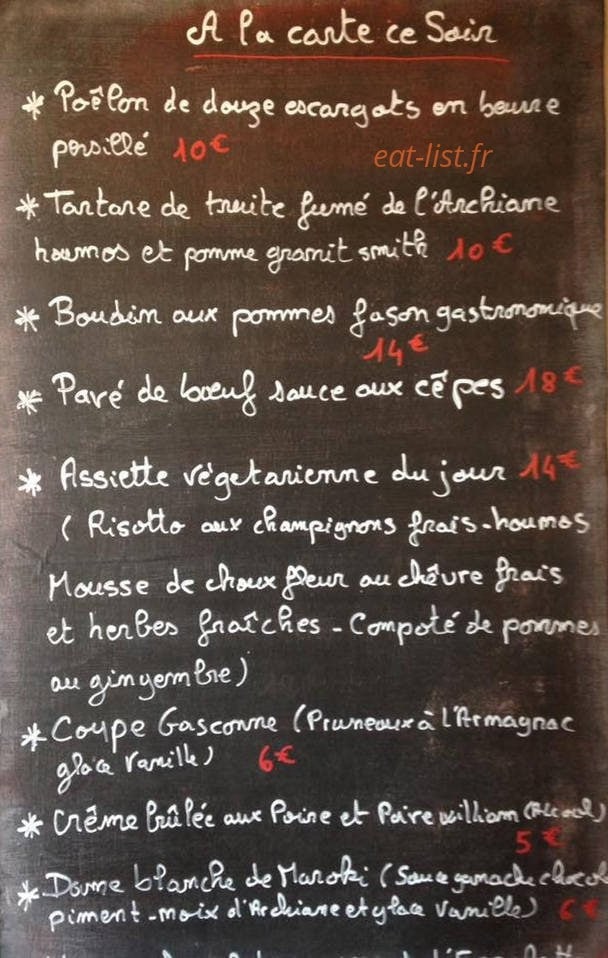 A la carte ce Soir
* Poêlon de douze escargots en beurre
persillé 10€
eat-list.fr
* Tartare de truite fumé de l'Archiane
houmos et pomme granit smith 10€
* Boudin aux pommes façon gastronomique
14€
* Pavé de bœuf sauce aux cêpes 18€
* Assiette végetarienne du jour 14€
( Risotto aux champignons frais-houmos
Mousse de choux fleur au chêvre frais
et herbes fraîches - Compoté de pommes
au gingembre)
* Coupe Gasconne (Pruneaux à l'Armagnac
glace Vanille) 6€
* Crême brûlée aux Poire et Poire william (Alcool)
5€
* Dame blanche de Maroki (Sauce ganache chocol
piment-noix d'Archiane et glace Vanille) 6€